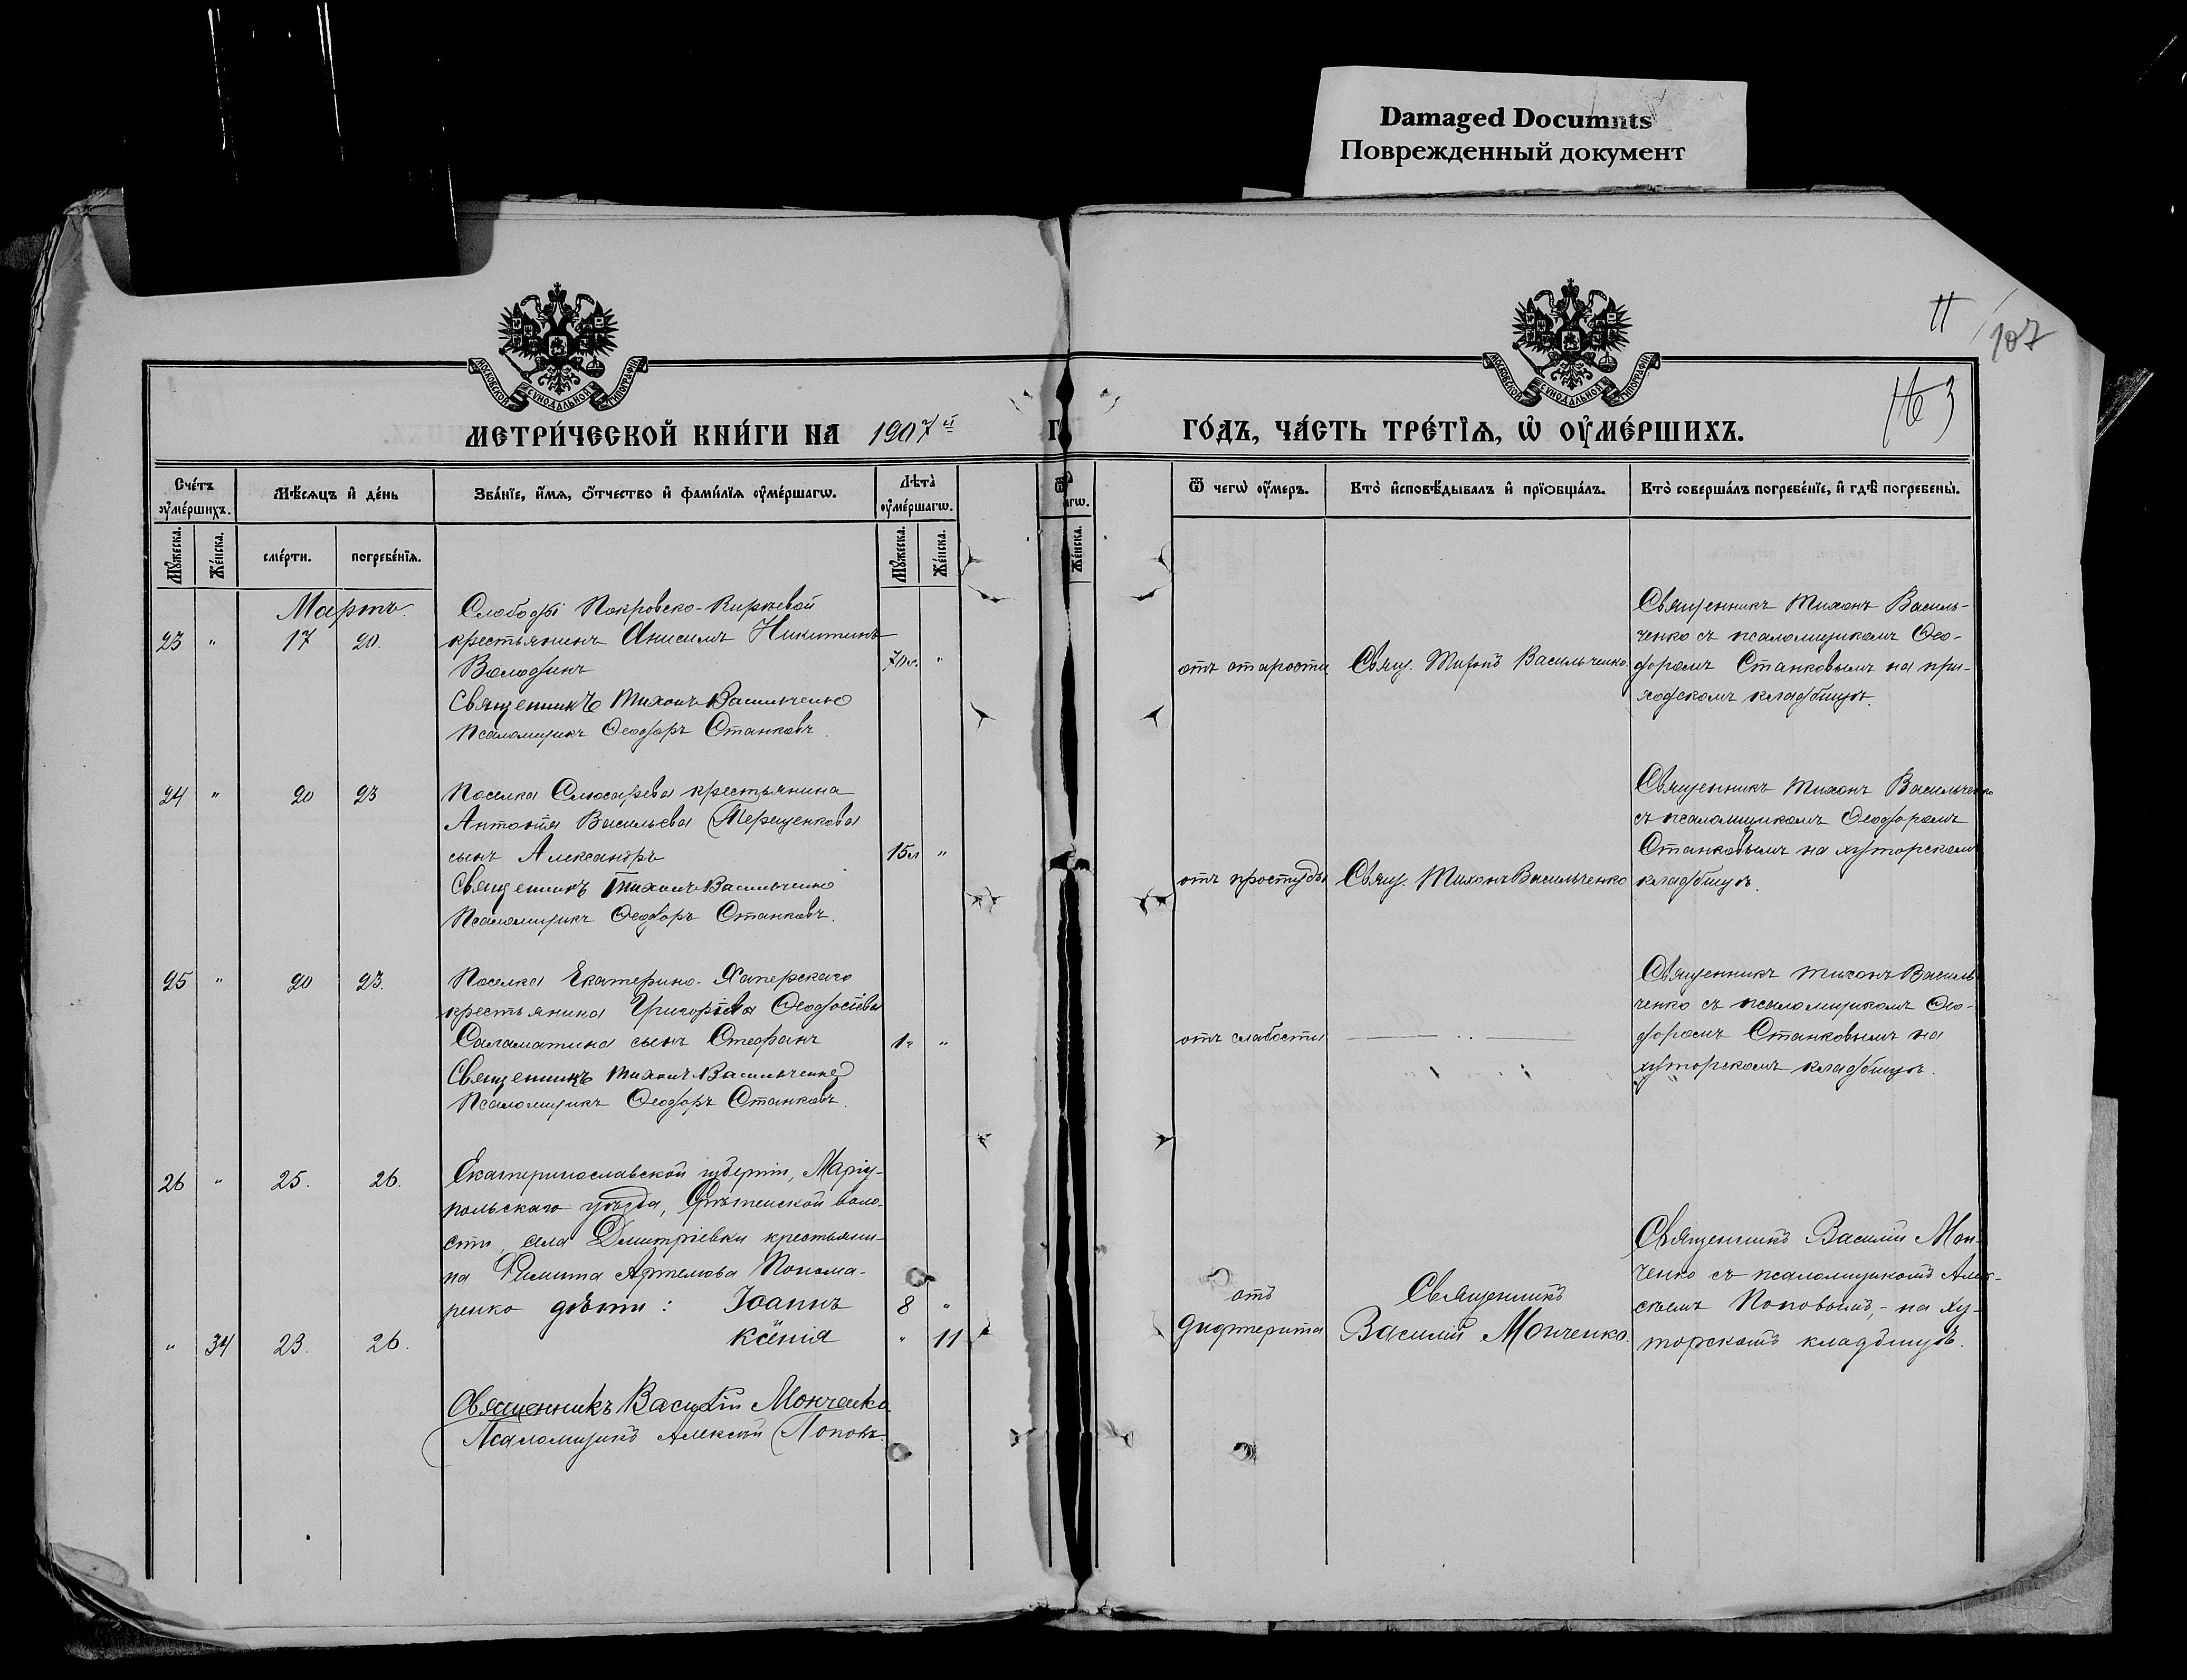 Damaged Documnts
Поврежденный документ
11
107
163
МОСКОВСКОЙ СУНОДАЛЬНОЙ ТИПОГРАФІИ
МОСКОВСКОЙ СУНОДАЛЬНОЙ ТИПОГРАФІИ
МЕТРИ́ЧЕСКОЙ КНИ́ГИ НА 1907й
ГО́ДЪ, ЧА́СТЬ ТРЕ́ТІѦ, Ѡ҆ ОУ҆МЕ́РШИХЪ.
Сче́тъ оу҆ме́ршихъ.
Мѣ́сѧцъ и҆ де́нь
Зва́нїе, и҆́мѧ, ѻ҆́тчество и҆ фами́лїѧ оу҆ме́ршагѡ.
Лѣ́та оу҆ме́ршагѡ.
Ѿ чегѡ̀ оу҆́меръ.
Кто̀ и҆сповѣ́дывалъ и҆ прїѻбща́лъ.
Кто̀ соверша́лъ погребе́нїе, и҆ гдѣ̀ погребены̀.
Мꙋ́жеска.
Же́нска.
сме́рти.
погребе́нїѧ.
Мꙋ́жеска.
Же́нска.
Же́нска.
Мартъ.
23 " 17 20.
Слободы Покровско-Киреевой
крестьянинъ Анисимъ Никитинъ
Володинъ
70л. "
Священникъ Тихонъ Васильченко
Псаломщикъ Ѳеодоръ Станковъ.
отъ старости
Свящ. Тихонъ Васильченко.
Священникъ Тихонъ Василь-
ченко съ псаломщикомъ Ѳео-
доромъ Станковымъ на при-
ходскомъ кладбищѣ.
24 " 20 23
Поселка Слюсарева крестьянина
Антонія Васильева Терещенкова
сынъ Александръ
15л "
Священникъ Тихонъ Васильченко
Псаломщикъ Ѳеодоръ Станковъ.
отъ простуды
Свящ. Тихонъ Васильченко
Священникъ Тихонъ Васильченко
съ псаломщикомъ Ѳеодоромъ
Станковымъ на хуторскомъ
кладбищѣ.
25 " 20 23.
Поселка Екатерино-Хаперскаго
крестьянина Григорія Ѳеодосіева
Саламатина сынъ Стефанъ
1г "
Священникъ Тихонъ Васильченко
Псаломщикъ Ѳеодоръ Станковъ.
отъ слабости
Священникъ Тихонъ Василь
ченко съ псаломщикомъ Ѳео-
доромъ Станковымъ на
хуторскомъ кладбищѣ.
26 " 25. 26.
Екатеринославской губерніи, Маріу-
польскаго уѣзда, воло-
сти, села Дмитріевки крестьяни-
на Артемова Понома-
ренко дѣти: Іоаннъ
8 "
" 34 23. 26.
Ксенія
" 11
отъ
дифтерита
Священникъ
Василій Монченко.
Священникъ Василій Мон-
ченко съ псаломщикомъ Алек-
сѣемъ Поповымъ,- на ху-
торскомъ кладбищѣ.
Священникъ Василій Монченко
Псаломщикъ Алексѣй Поповъ.